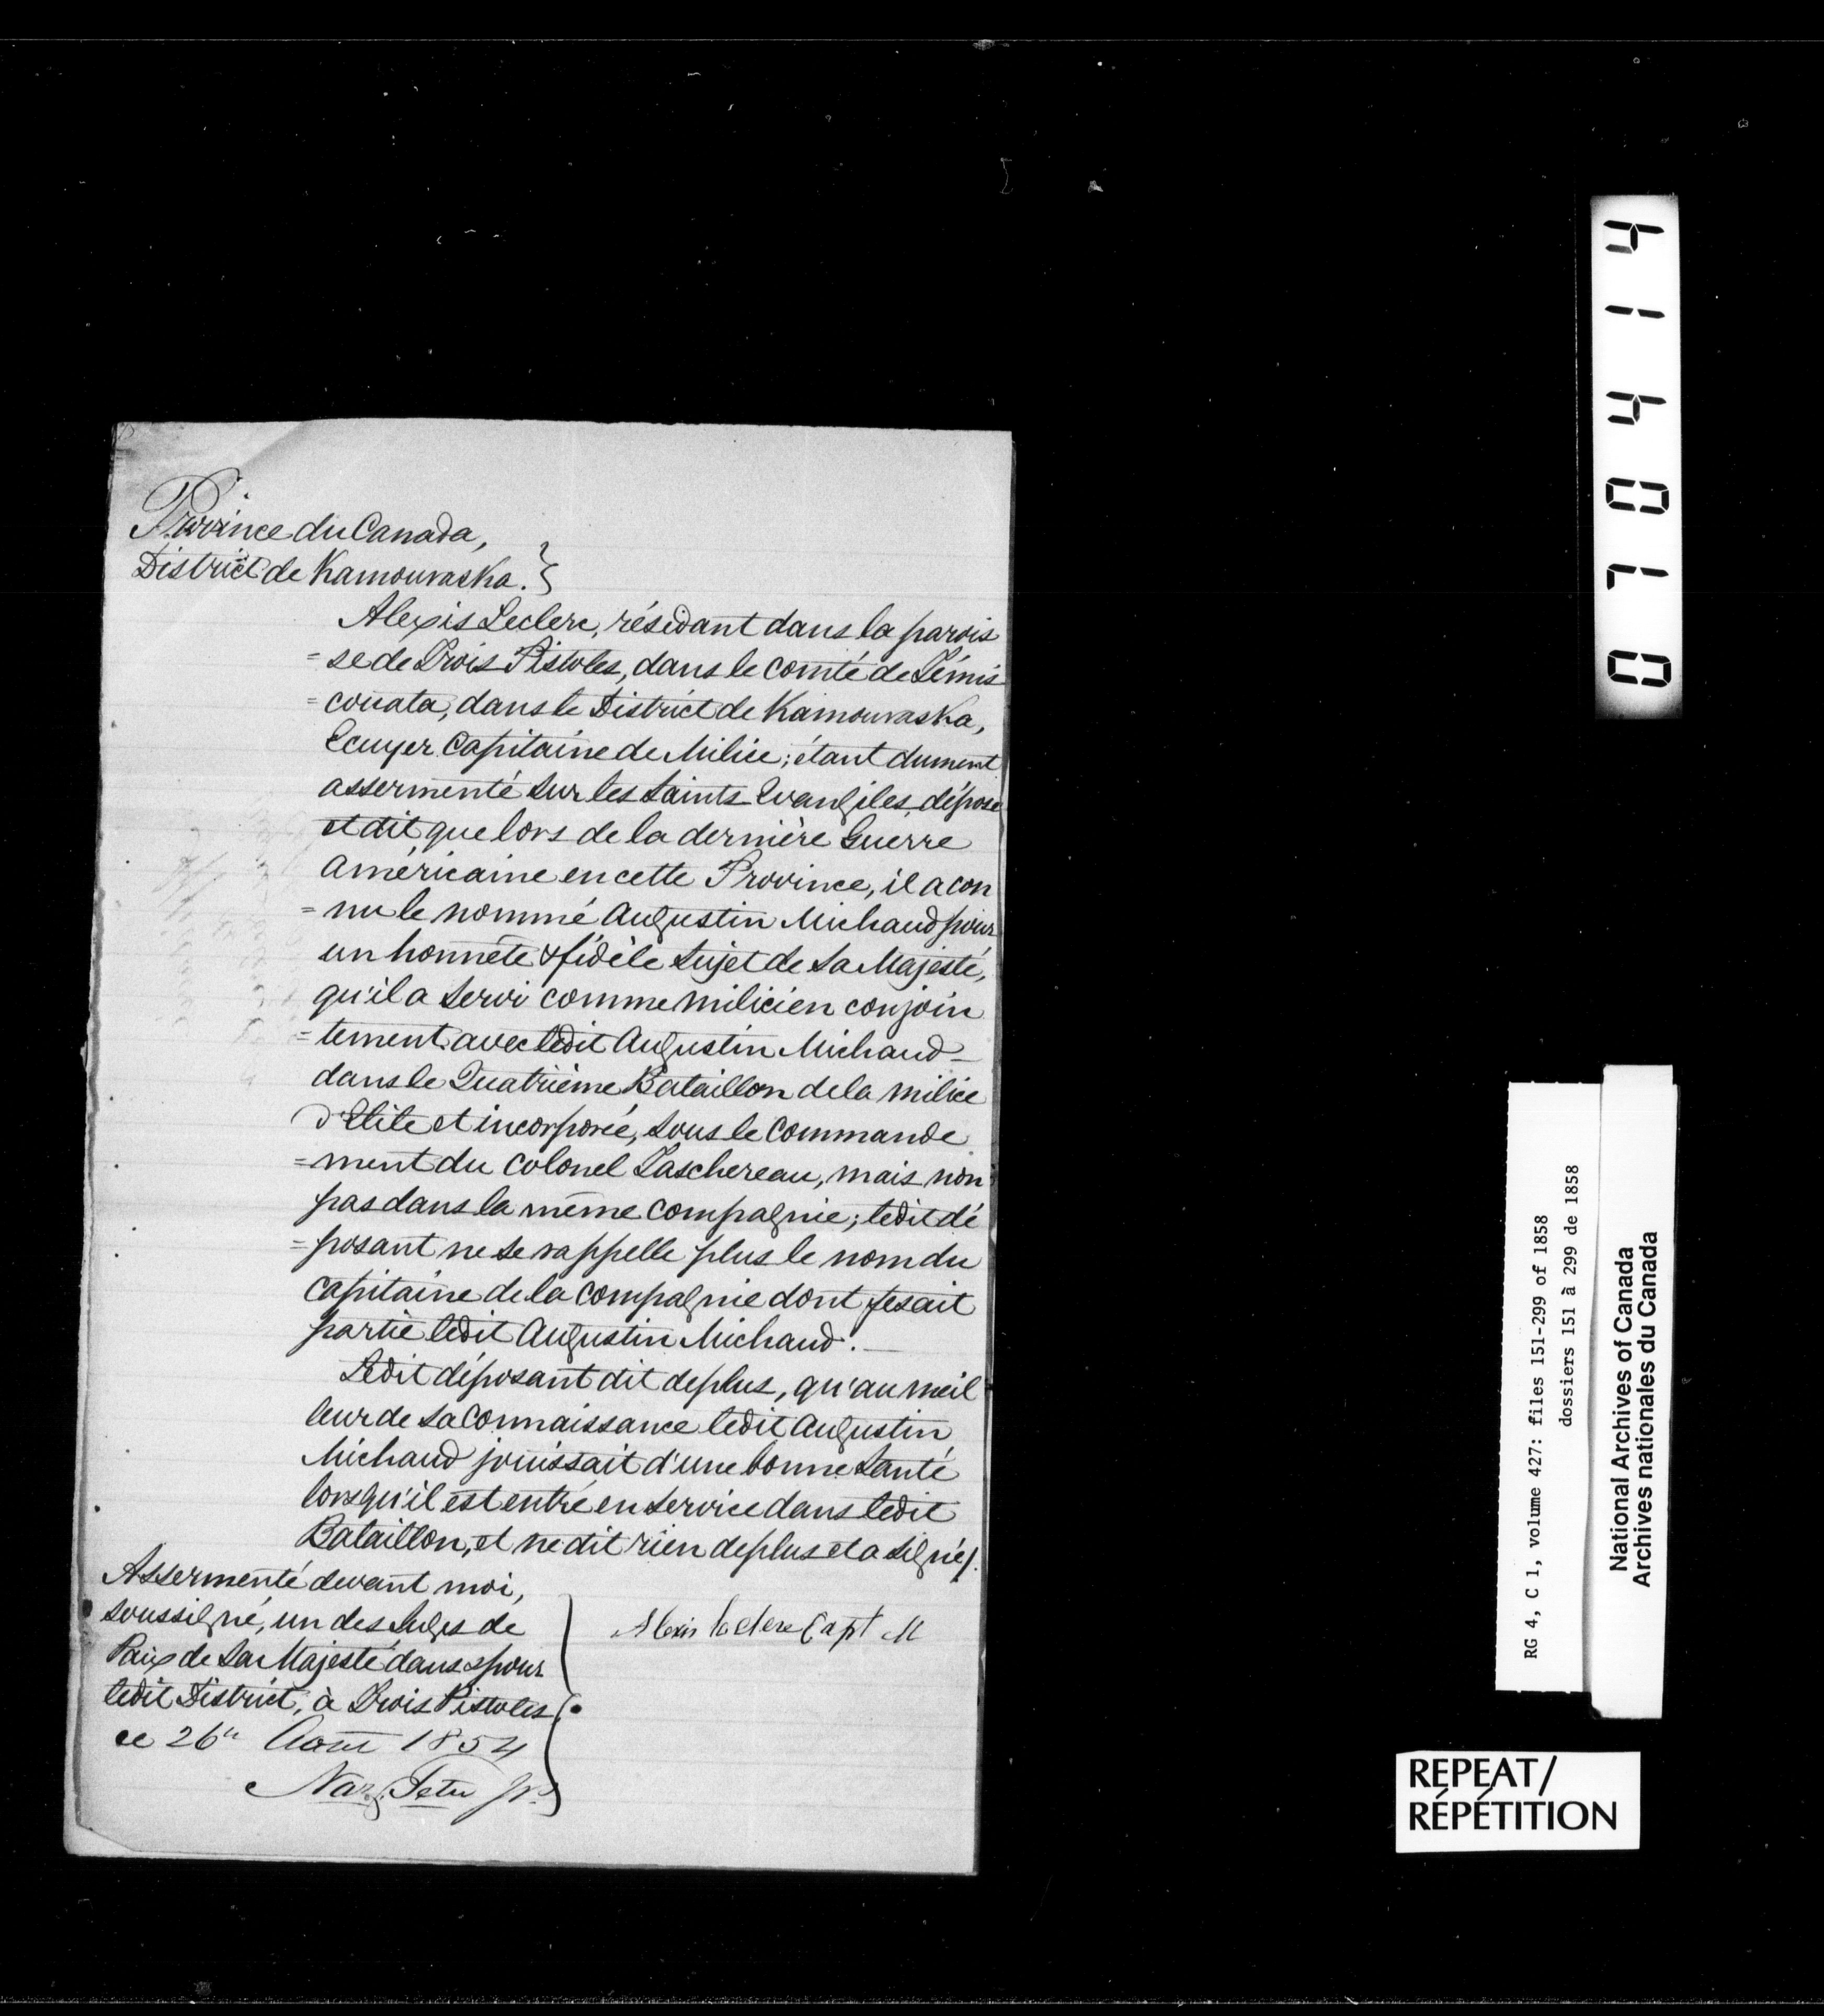 Province du Canada,
District de Kamouraska. }
Alexis Leclerc, résidant dans la parois
=se de Trois Pistoles, dans le comté de Témis
=couata, dans le District de Kamouraska,
Ecuyer Capitaine de Milice; étant dument
assermenté sur les Saints Evangiles, dépose
et dit que lors de la dernière Guerre
Américaine en cette Province, il a con
=nu le nommé Augustin Michaud pour
un honnête & fidèle Sujet de Sa Majesté,
qu'il a servi comme milicien conjoin
=tement avec ledit Augustin Michaud_
dans le Quatrième Bataillon de la milice
d'Elite et incorporée, sous le commande
=ment du Colonel Taschereau, mais non
pas dans la même compagnie; ledit dé
=posant ne se rappelle plus le nom du
Capitaine de la compagnie dont fesait
partie ledit Augustin Michaud._
Ledit déposant dit de plus, qu'au meil
leur de sa connaissance ledit Augustin
Michaud jouissait d'une bonne santé
lorsqu'il est entré en service dans ledit
Bataillon, et ne dit rien de plus et a signé/.
Assermenté devant moi,
soussigné, un des Juges de
Paix de Sa Majesté dans & pour
ledit District, à Trois Pistoles,
ce 26 Aout 1854
Naz. Tetu
Alexis leclerc Capt M
070414
RG 4, C 1, volume 427: files 151-299 of 1858
dossiers 151 à 299 de 1858
National Archives of Canada
Archives nationales du Canada
REPEAT/
RÉPÉTITION